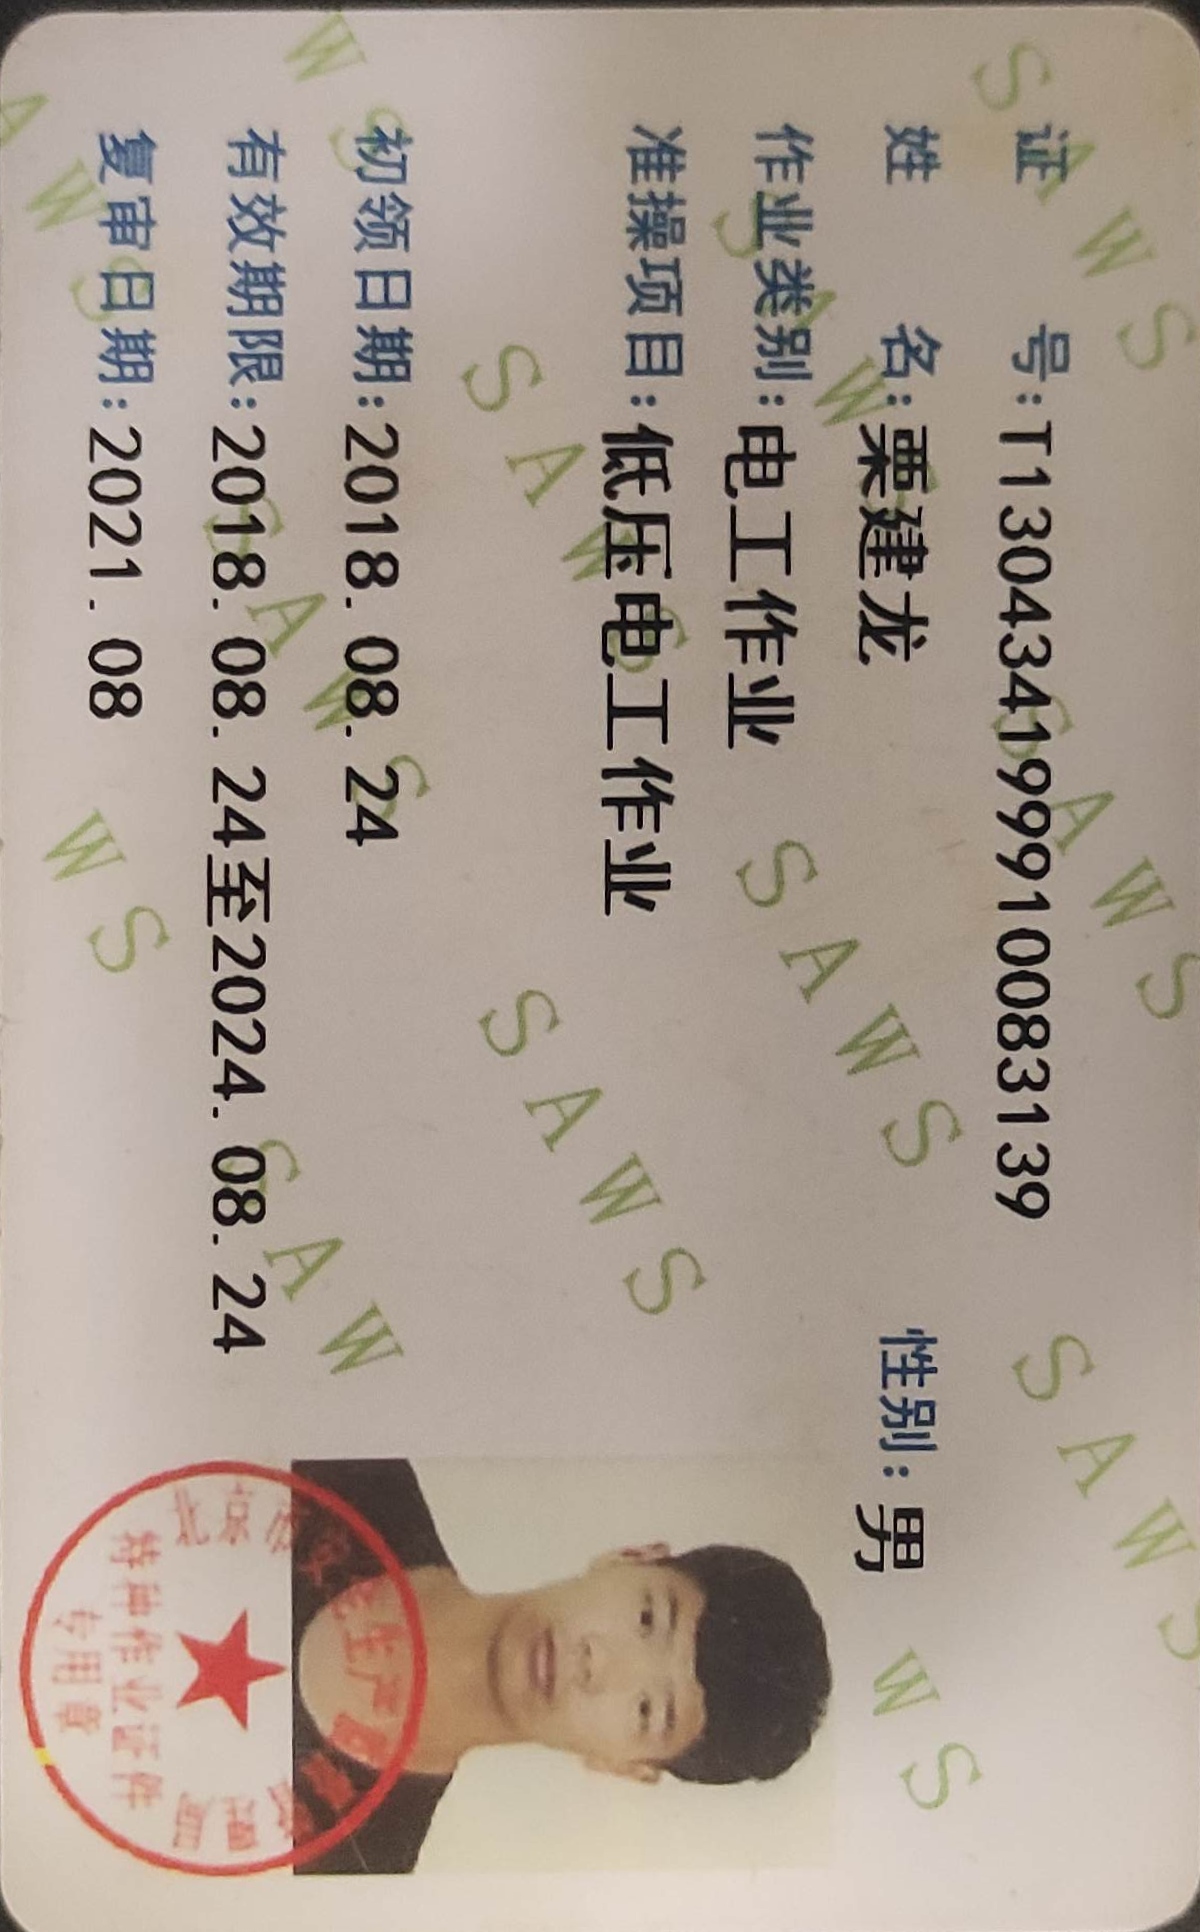 证 号：T130434199910083139
姓 名：栗建龙 性别：男
作业类别：电工作业
准操项目：低压电工作业
初领日期：2018.08.24
有效期限：2018.08.24至2024.08.24
复审日期：2021.08
北京市安全生产监督管理局
特种作业证件
专用章
SAWS
SAWS
SAWS
SAWS
SAWS